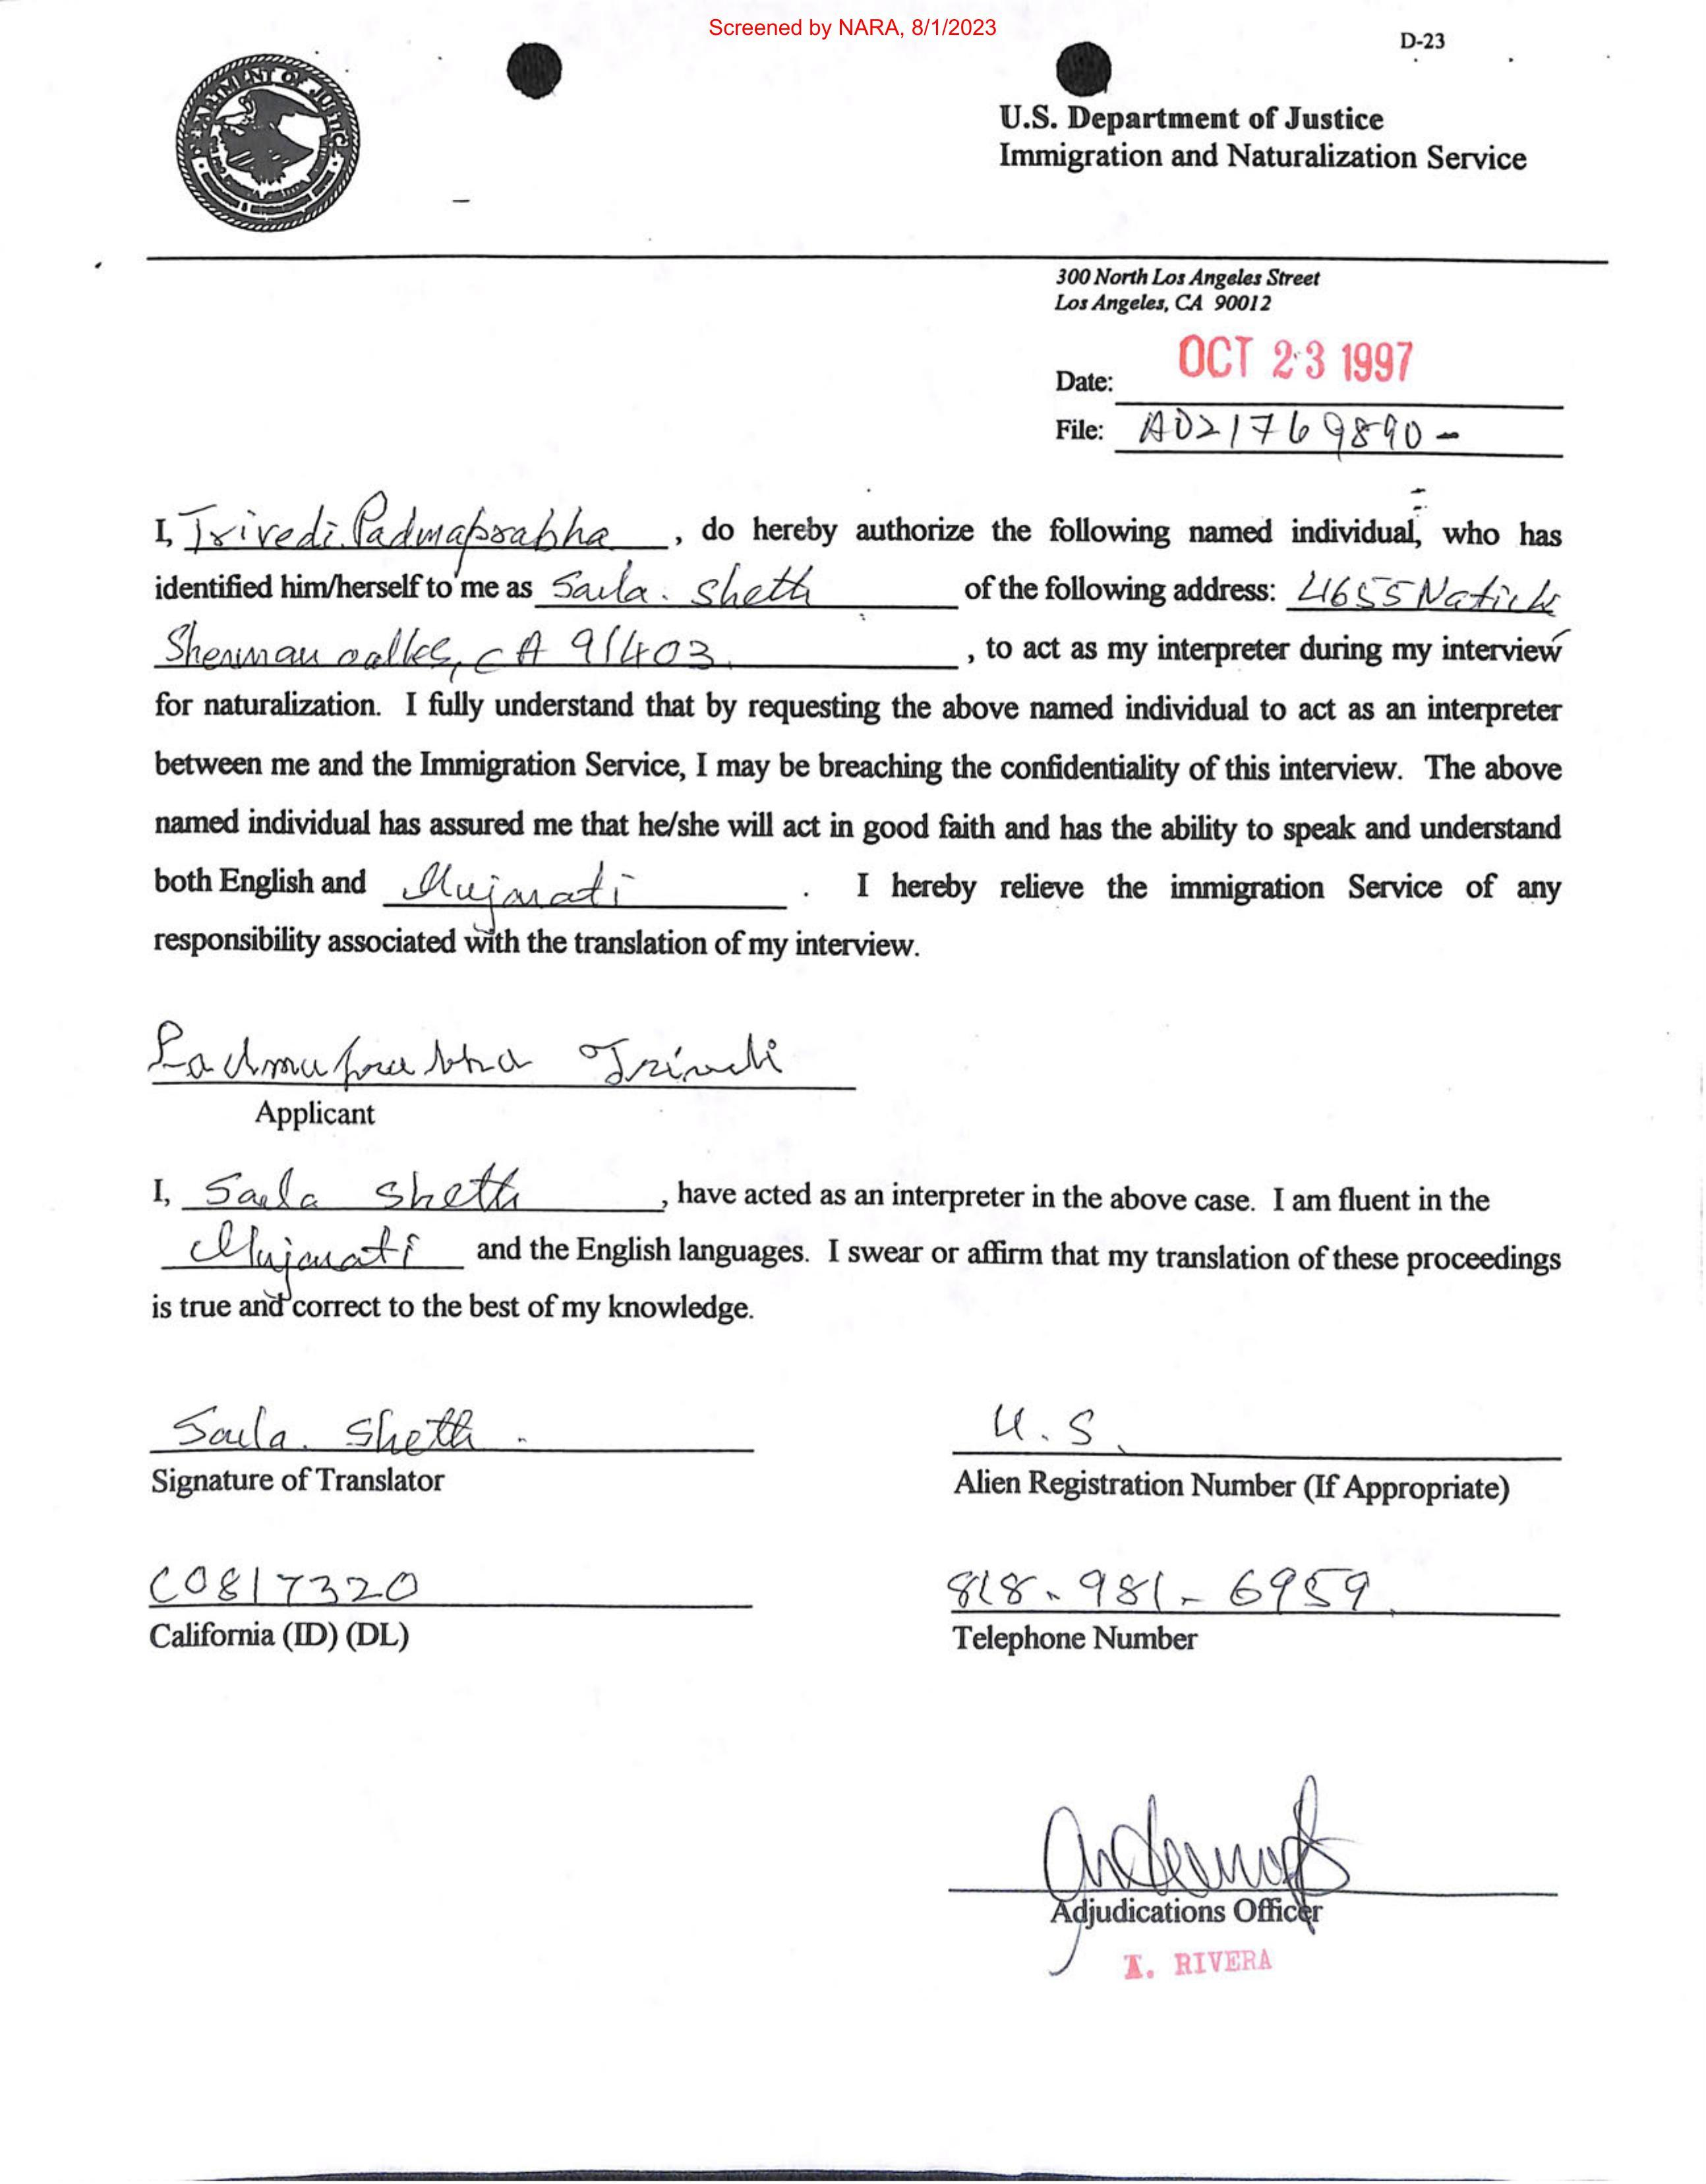 Screened by NARA, 8/1/2023
D-23
U.S. Department of Justice
Immigration and Naturalization Service
300 North Los Angeles Street
Los Angeles, CA 90012
Date: OCT 23 1997
File: A021769890-
I, Trivedi. Padmaprabha, do hereby authorize the following named individual, who has
identified him/herself to me as Saila. Sheth of the following address: 4655 Natick
Sherman oalks, CA 91403, to act as my interpreter during my interview
for naturalization. I fully understand that by requesting the above named individual to act as an interpreter
between me and the Immigration Service, I may be breaching the confidentiality of this interview. The above
named individual has assured me that he/she will act in good faith and has the ability to speak and understand
both English and Gujarati. I hereby relieve the immigration Service of any
responsibility associated with the translation of my interview.
Padmaprabha Trivedi
Applicant
I, Saila Sheth, have acted as an interpreter in the above case. I am fluent in the
Gujarati and the English languages. I swear or affirm that my translation of these proceedings
is true and correct to the best of my knowledge.
Saila. Sheth.
U.S.
Signature of Translator
Alien Registration Number (If Appropriate)
C0817320
818-981-6959
California (ID) (DL)
Telephone Number
Adjudications Officer
RIVERA